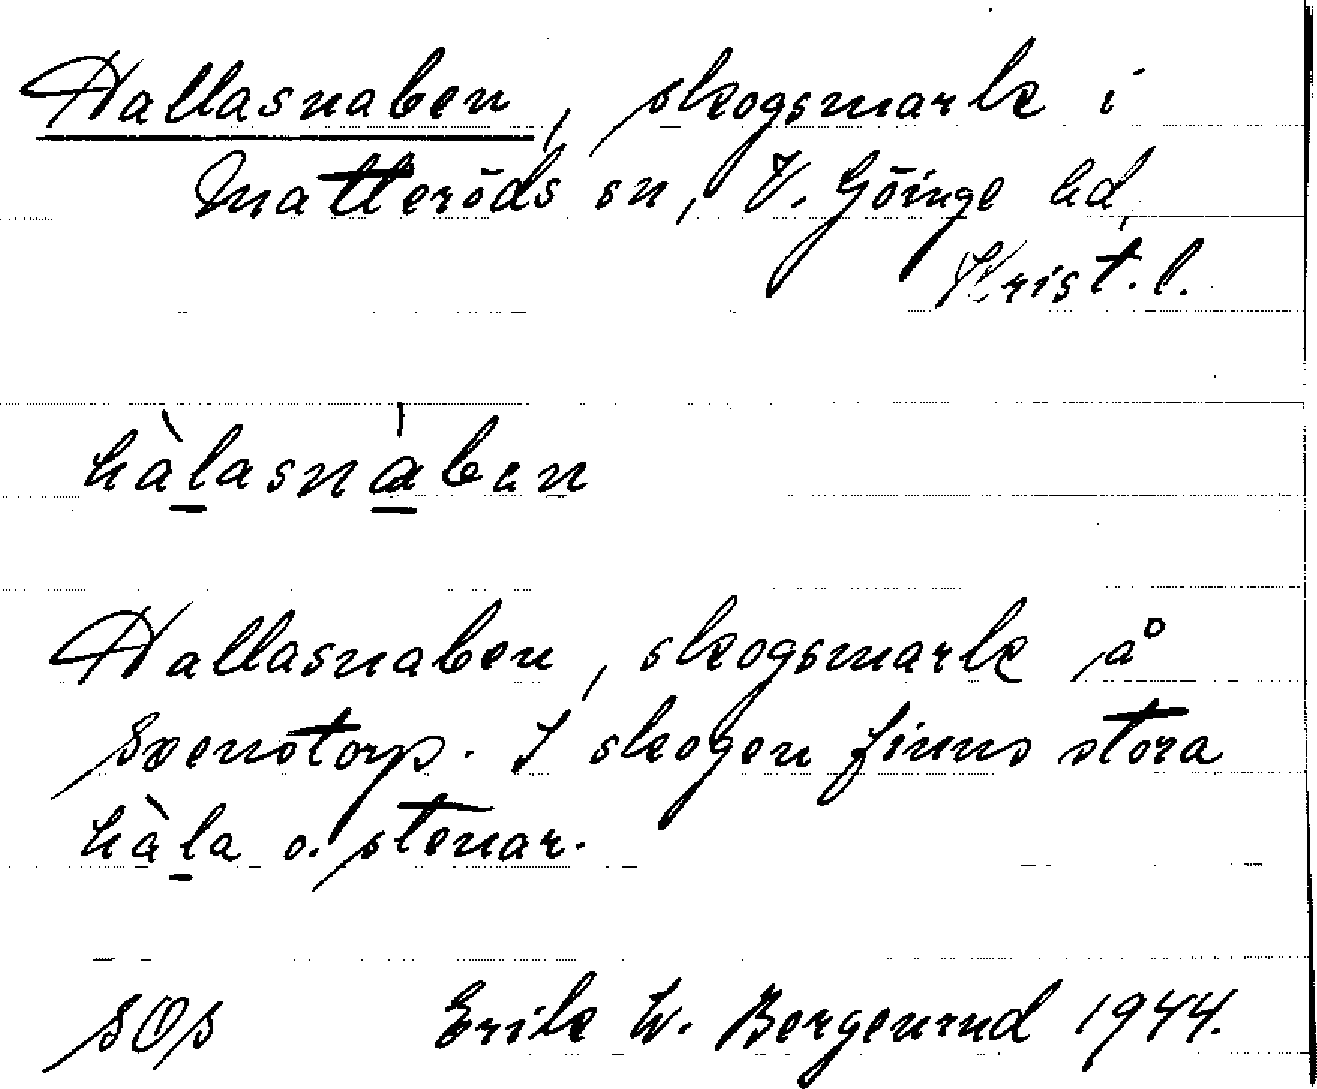 Hallasnaben, skogsmark i
Matteröds sn, V. Göinge hd,
Krist. l.
hàlasnàben
Hallasnaben, skogsmark å
Svenstorp. I skogen finns stora
hàla o. stenar.
SOs
Erik W. Bergenrud 1944.